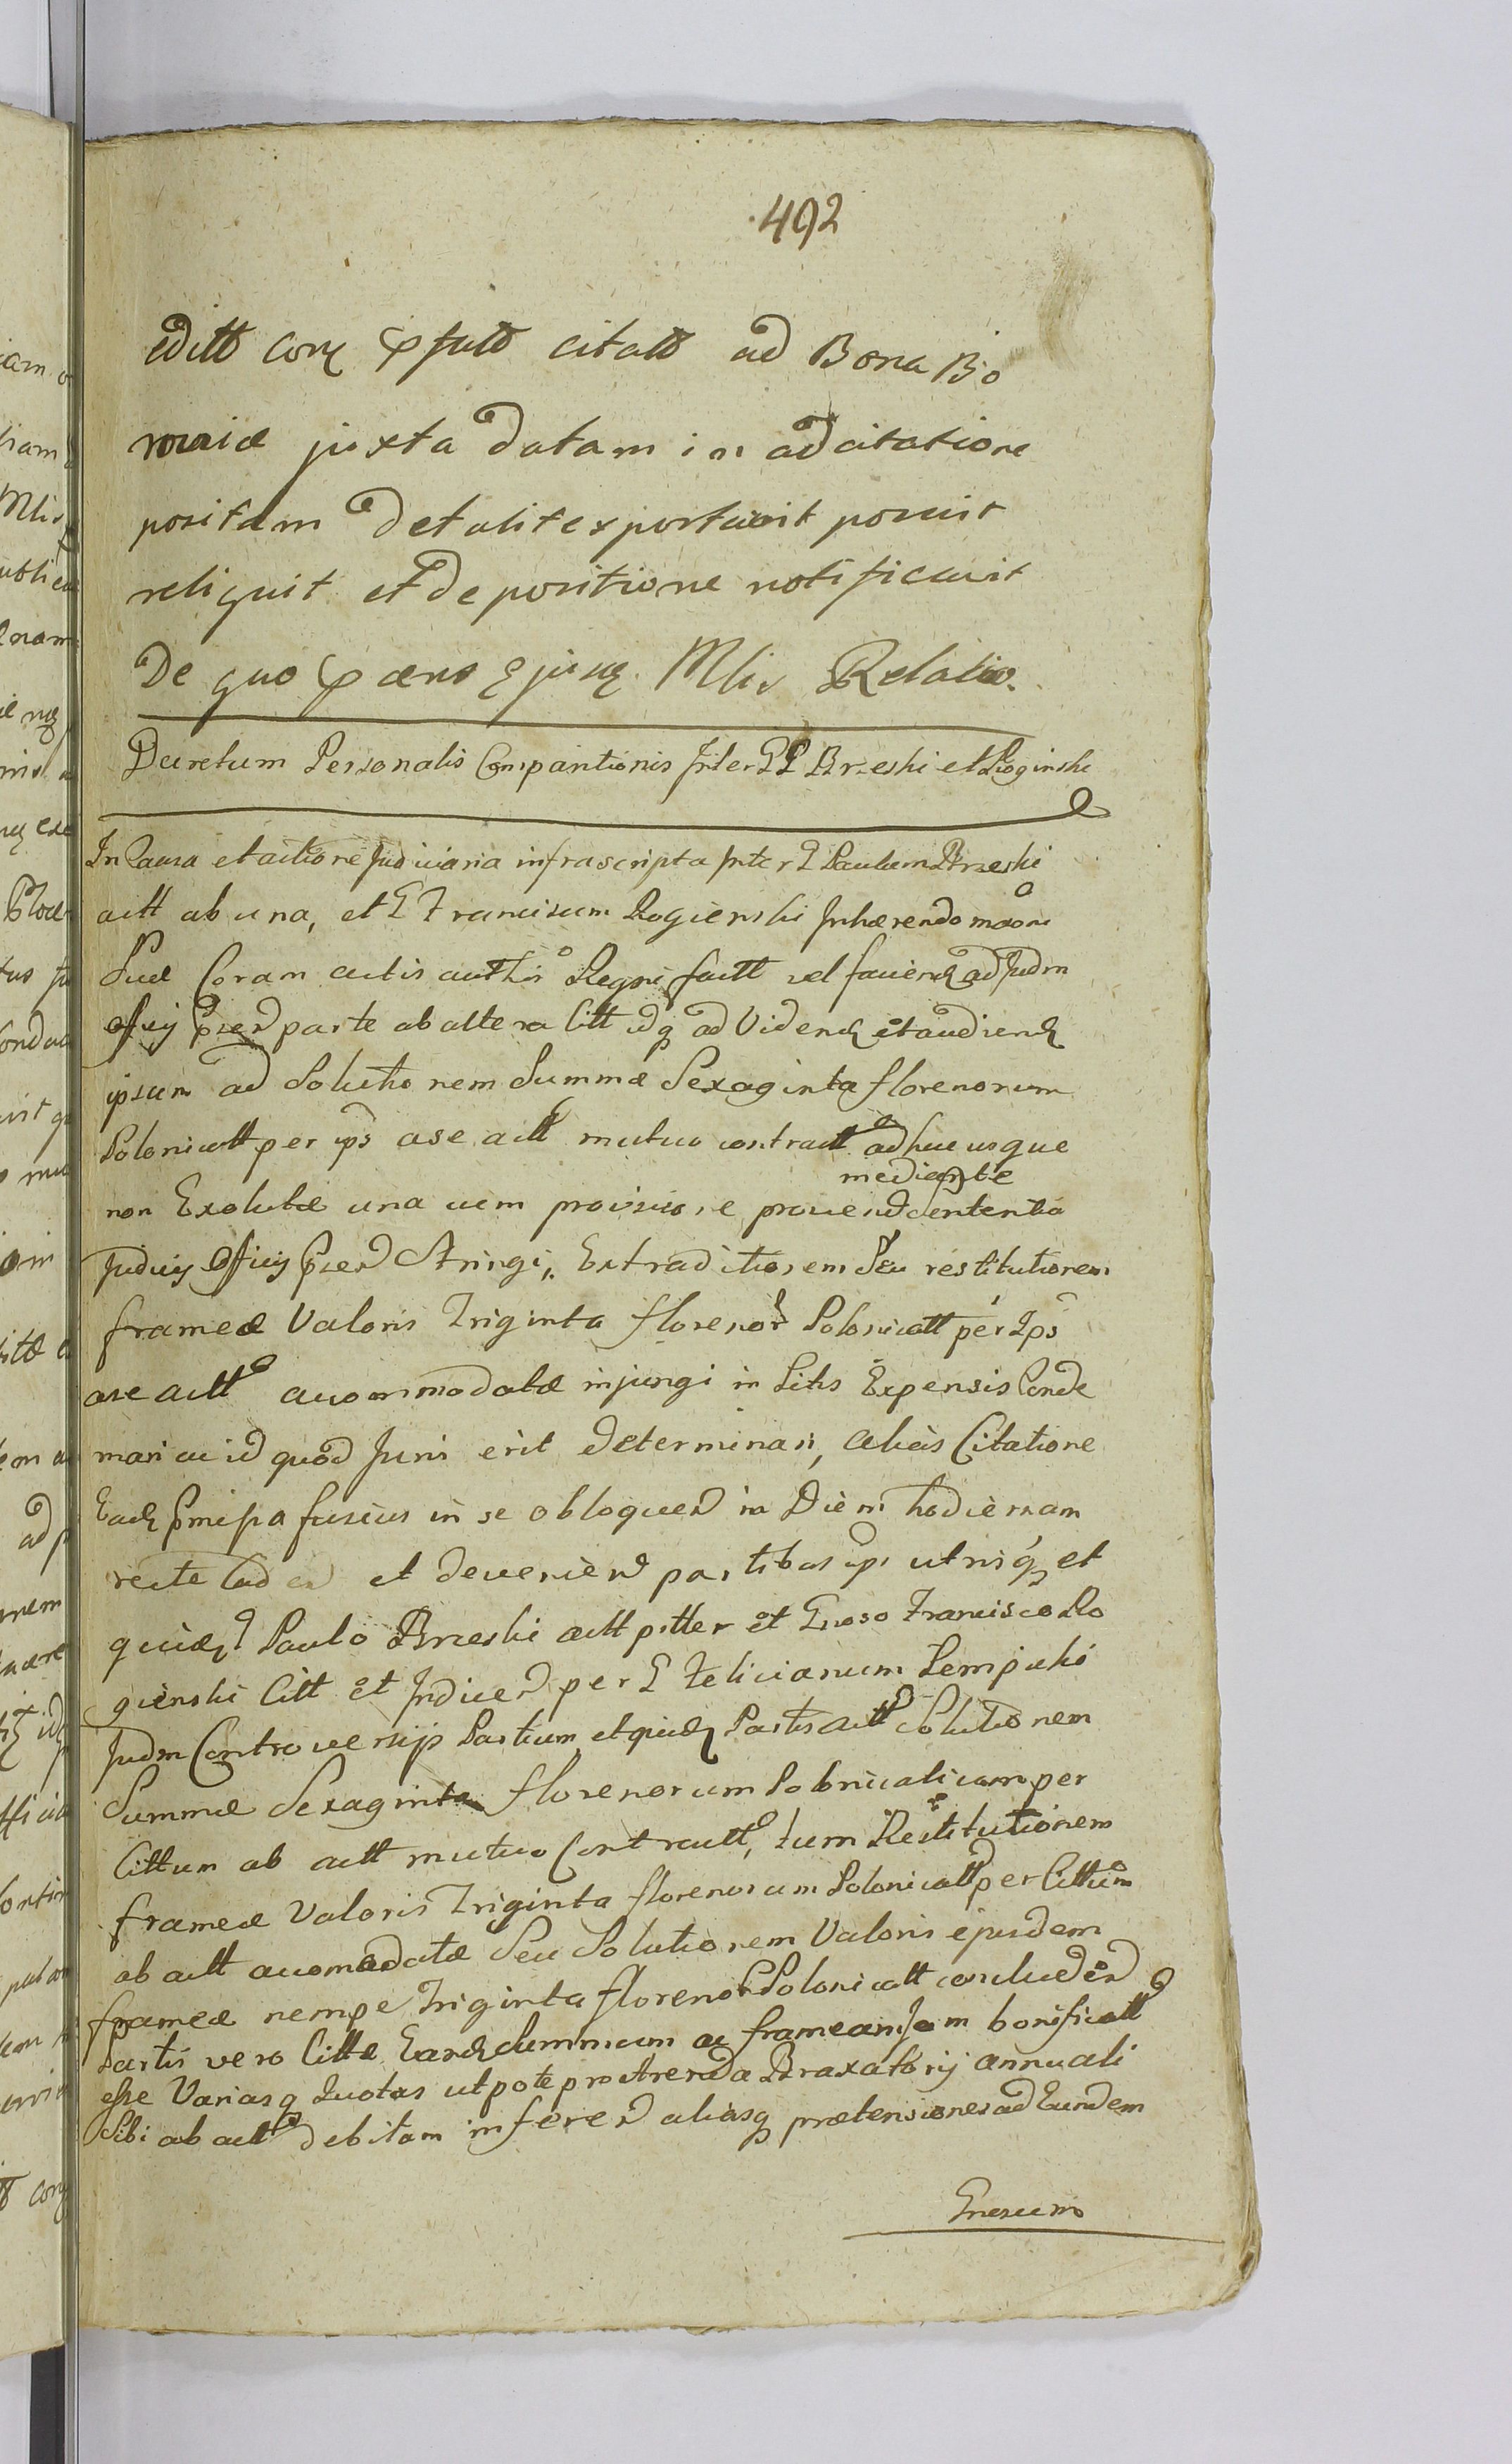 492
editt coram citatt ad Bona Bo
rowie juxta datam in adcitatione
positam detulit exportavit posuit
reliquit et de positione notificavit
De quo pns ejusq Mlis Relatio.
Decretum Personalis Compartionis Inter GG Brzeski et Roginski
In Causa et actione Judiciaria infrascripta Inter G Paulum Brzeski
actt ab una, et G Franciscum Rogienski Inhærendo maõni
Suæ Coram actis authis Regni factt vel faciend ad Judm
Officij parte ab altera Citt idq ad Videnđ et audienđ
ipsum ad Solutionem Summæ Sexaginta florenorum
Polonicatt per ips a se actt mutuo contractt adhucusque
mediante
non Exolutæ una cum provisione sententia
Judicij Officij Stringi, Extraditionem Seu restitutionem
frameæ Valoris Triginta florenor Polonicatt per Ips
a se actt accommodatæ injungi in Litis Expensis Conde
mnari ac id quod Juris erit determinari, alias Citatione
Eadq fusius in se obloquend in Diem hodiernam
recte Cadend et devenienđ partibus ips utrisq et
quidq Paulo Brzeski actt pltter et Gnoso Francisco Ro
gienski Citt et Inducend per G Felicianum Lempicki
Judm Controversijs Partium et quidq Partis actt Solutionem
Summæ Sexaginta florenorum Polonicalicum per
Cittum ab actt mutuo Contractt, tum Restitutionem
frameæ Valoris Triginta florenorum Polonicatt per Cittum
ab actt accomodatæ Seu Solutionem Valoris ejusdem
frameæ nempe Triginta florenor Polonicatt concludend
Partis vero Cittæ Eandq Summam ac frameam Jam bonificatt
esse Variasq Quotas utpote pro Arenda Braxatorij annuali
Sibi ab actt debitam inferend aliasq prætensiones ad Eundem
Gnesum